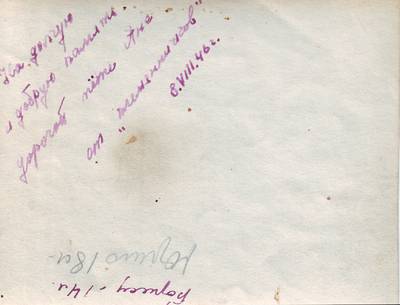 На долгую
и добрую память
дорогой тёте Яне
от "племенников"
8.VIII.46г.
Юрию 18л.
Борису - 14л.